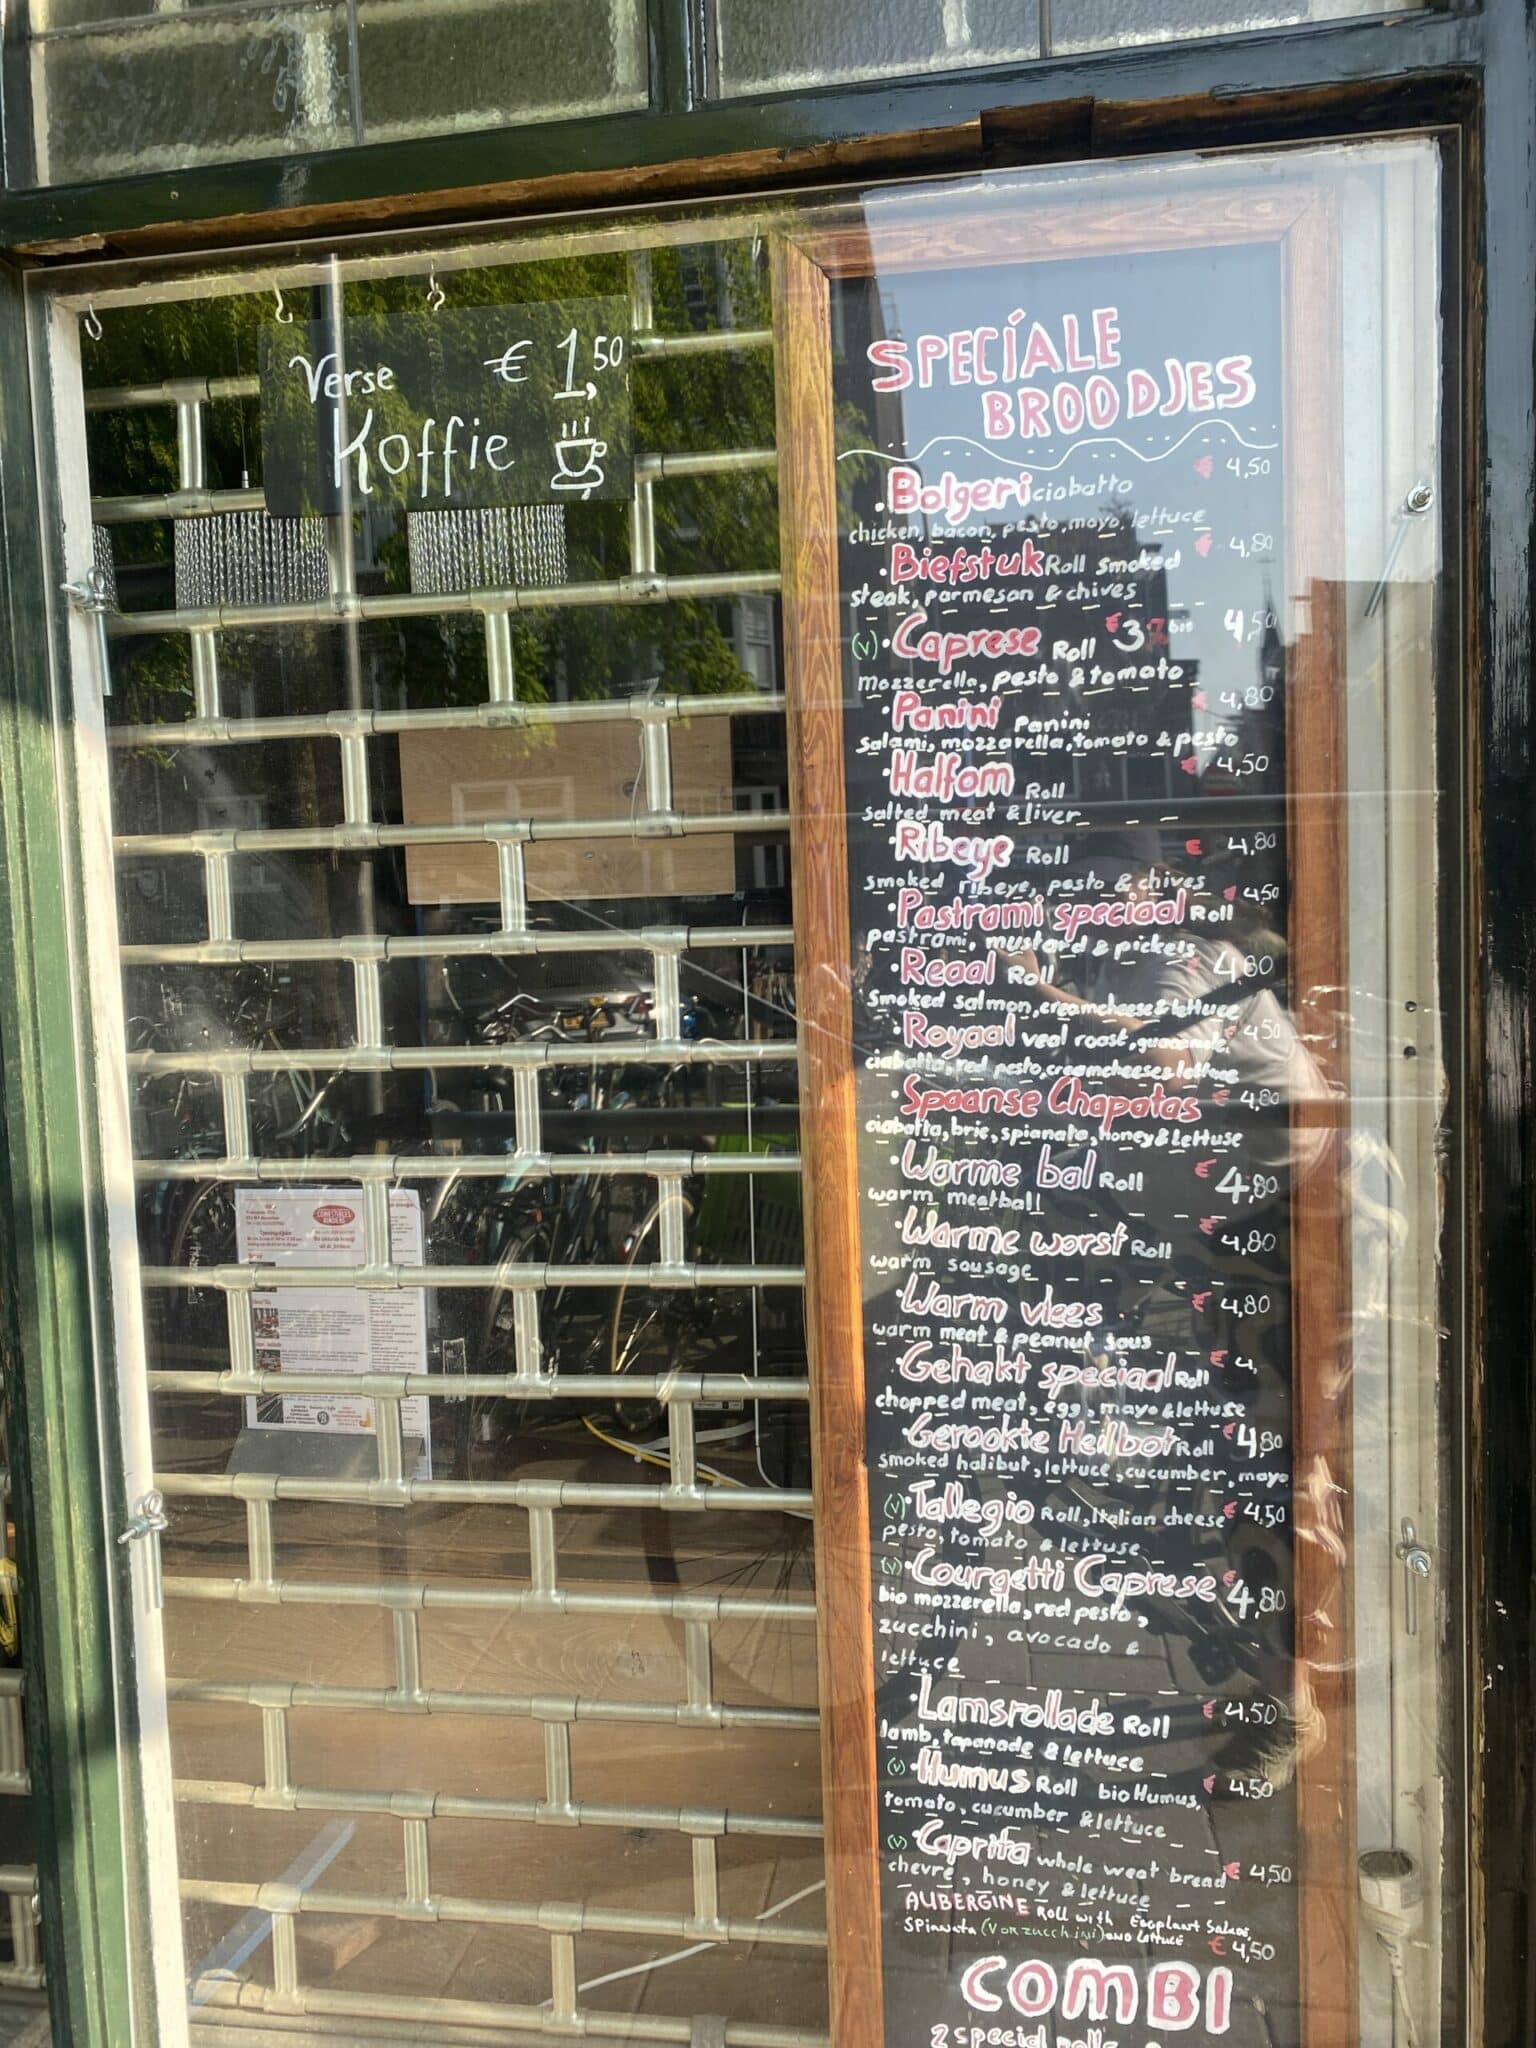 Verse € 1,50
Koffie
SPECÍALE
BROODJES
• Bolgeri ciabatta € 4,50
chicken, bacon, pesto, mayo, lettuce
• Biefstuk Roll smoked € 4,80
steak, parmesan & chives
(v) • Caprese Roll 4,50
mozzerella, pesto & tomato
• Panini Panini € 4,80
salami, mozzarella, tomato & pesto
• Halfom Roll € 4,50
salted meat & liver
• Ribeye Roll € 4,80
smoked ribeye, pesto & chives
• Pastrami speciaal Roll € 4,50
pastrami, mustard & pickels
• Reaal Roll € 4,80
smoked salmon, creamcheese & lettuce
• Royaal veal roast, € 4,50
ciabatta, red pesto, creamcheese & lettuce
• Spaanse Chapatas € 4,80
ciabatta, brie, spianata, honey & lettuse
• Warme bal Roll € 4,80
warm meatball
• Warme worst Roll € 4,80
warm sausage
• Warm vlees € 4,80
warm meat & peanut saus
• Gehakt speciaal Roll € 4,
chopped meat, egg, mayo & lettuse
• Gerookte Heilbot Roll € 4,80
smoked halibut, lettuce, cucumber, mayo
(v) • Tallegio Roll, Italian cheese € 4,50
pesto, tomato & lettuse
(v) • Courgetti Caprese € 4,80
bio mozzerella, red pesto,
zucchini, avocado &
lettuce
• Lamsrollade Roll € 4.50
lamb, tapanade & lettuce
(v) • Humus Roll bio Humus, € 4,50
tomato, cucumber & lettuce
(v) • Caprita whole weat bread € 4,50
chevre, honey & lettuce
AUBERGINE Roll with Eggplant Salade,
SPianata (V or zucchini) AND Lettuce € 4,50
COMBI
2 special rolls